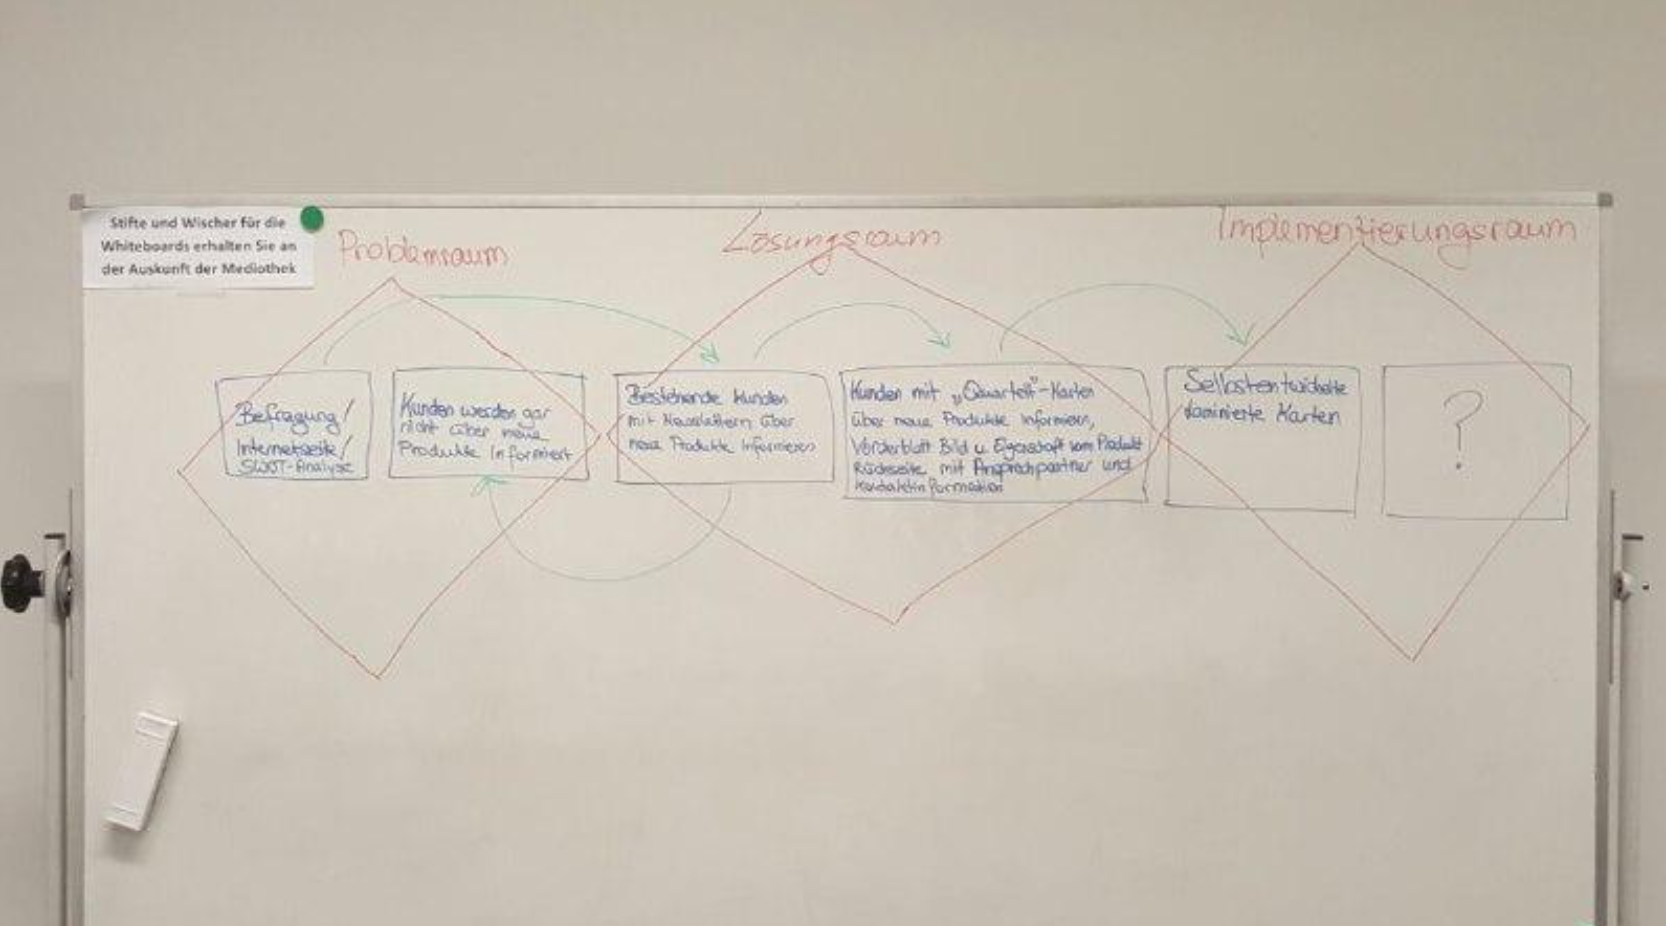 Stifte und Wischer für die
Whiteboards erhalten Sie an
der Auskunft der Mediothek
Problemraum
Lösungsraum
Implementierungsraum
Befragung/
Internetseite/
SWOT-Analyse
Kunden werden gar
nicht über neue
Produkte Informiert
Bestehende Kunden
mit Newslettern über
neue Produkte Informieren
Kunden mit „Quartett"-Karten
über neue Produkte Informieren,
Vorderblatt Bild u. Eigenschaft vom Produkt
Rückseite mit Ansprechpartner und
Kontaktinformation
Selbstentwickelte
laminierte Karten
?